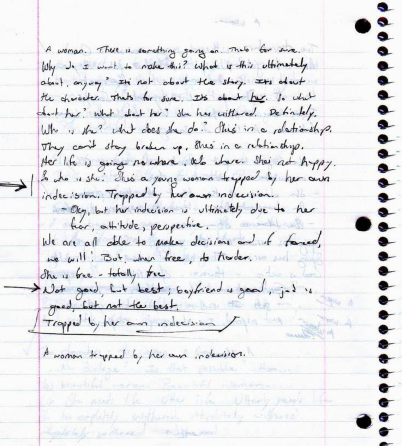 A woman. There is something going on. Thats for sure.
Why do I want to make this? What is this ultimately
about, anyway? Its not about the story. Its about
the character. Thats for sure. Its about her. So what
about her? What about her? She has withered. Definitely.
Who is she? What does she do? Shes in a relationship.
They can't stay broken up. Shes in a relationship.
Her life is going nowhere. where. Shes not happy.
So who is she. Shes a young woman trapped by her own
indecision. Trapped by her own indecision.
- Okay, but her indecision is ultimately due to her
fear, attitude, perspective.
We are all able to make decisions and if forced,
we will! But, when free, its harder.
She is free - totally free
Not good, but best, boyfriend is good, job is
good but not the best.
Trapped by her own indecision
A woman trapped by her own indecision.